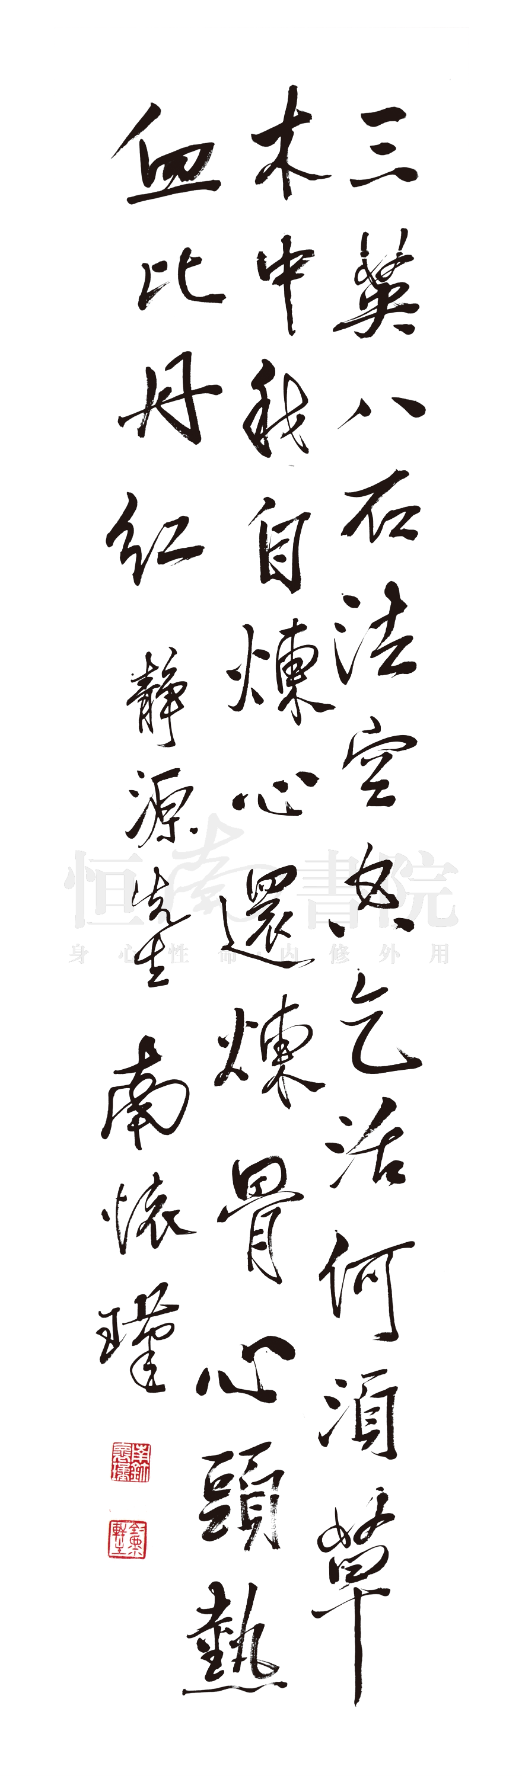 三黃八石法空乞活何須草
木中我自煉心還煉骨心頭熱
血比丹紅 靜源先生 南懷瑾
恒南書院
身心性命 内修外用